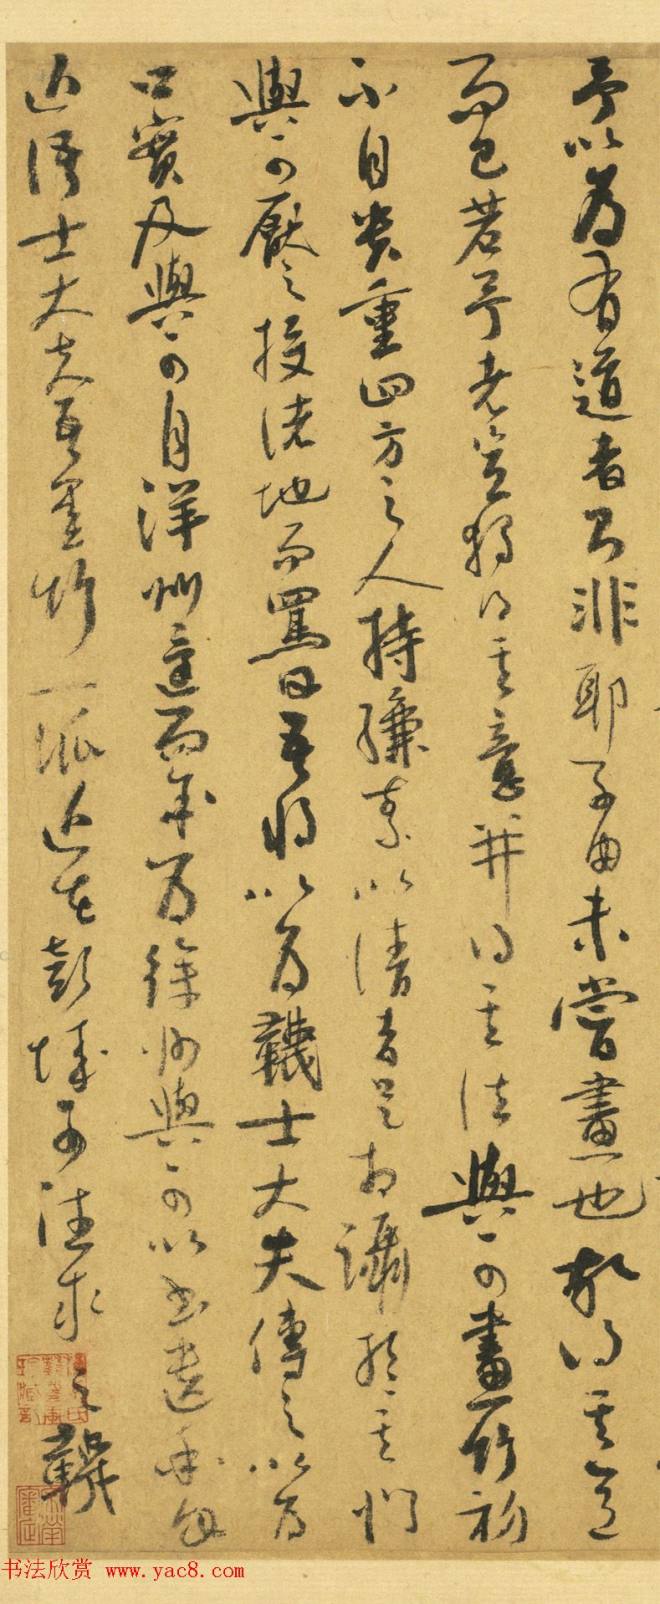 予以為有道者則非耶子由未嘗畫也故得其意
而已若予者豈獨得其意并得其法與可畫竹初
不自貴重四方之人持縑素以請者足相躡於其門
與可厭之投諸地而罵曰吾將以為韈士大夫傳之以為
口實及與可自洋州還而余為徐州與可以書遺余曰
近語士大夫吾墨竹一派近在彭城可往求之韈
书法欣赏 www.yac8.com